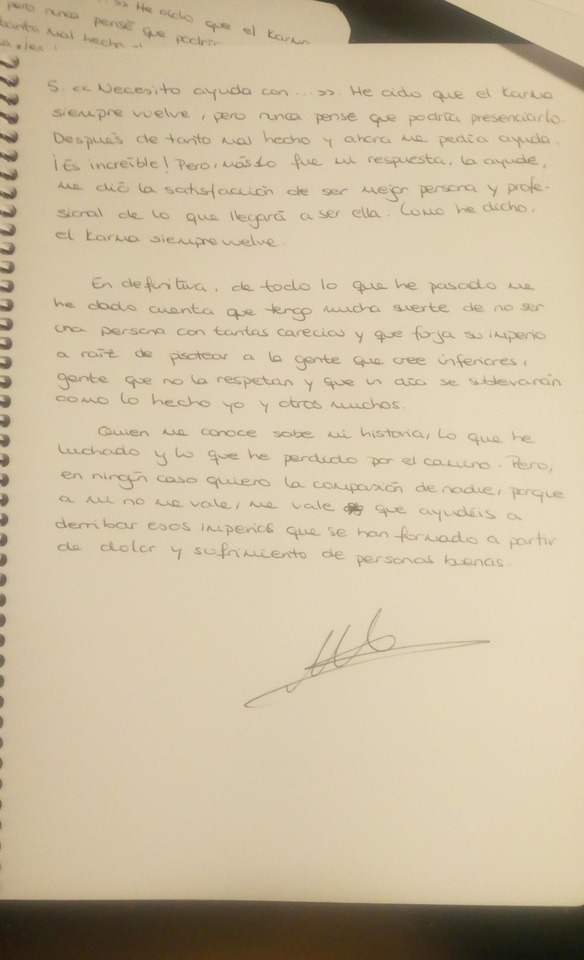 pero nunca pensé que podría
tanto mal hecho
He dicho que el Karma
5. << Necesito ayuda con...>>. He oído que el Karma
siempre vuelve, pero nunca pensé que podría presenciarlo.
Después de tanto mal hecho y ahora me pedía ayuda.
¡Es increíble! Pero, más lo fue mi respuesta, la ayudé,
me dió la satisfacción de ser mejor persona y profe-
sional de lo que llegará a ser ella. Como he dicho,
el Karma siempre vuelve.
En definitiva, de todo lo que he pasado me
he dado cuenta que tengo mucha suerte de no ser
una persona con tantas carecias y que forja su imperio
a raíz de pisotear a la gente que cree inferiores,
gente que no la respetan y que un día se sublevarán
como lo hecho yo y otros muchos.
Quien me conoce sabe mi historia, lo que he
luchado y lo que he perdido por el camino. Pero,
en ningún caso quiero la compasión de nadie, porque
a mi no me vale, me vale que ayudéis a
derribar esos imperios que se han formado a partir
de dolor y sufrimiento de personas buenas.